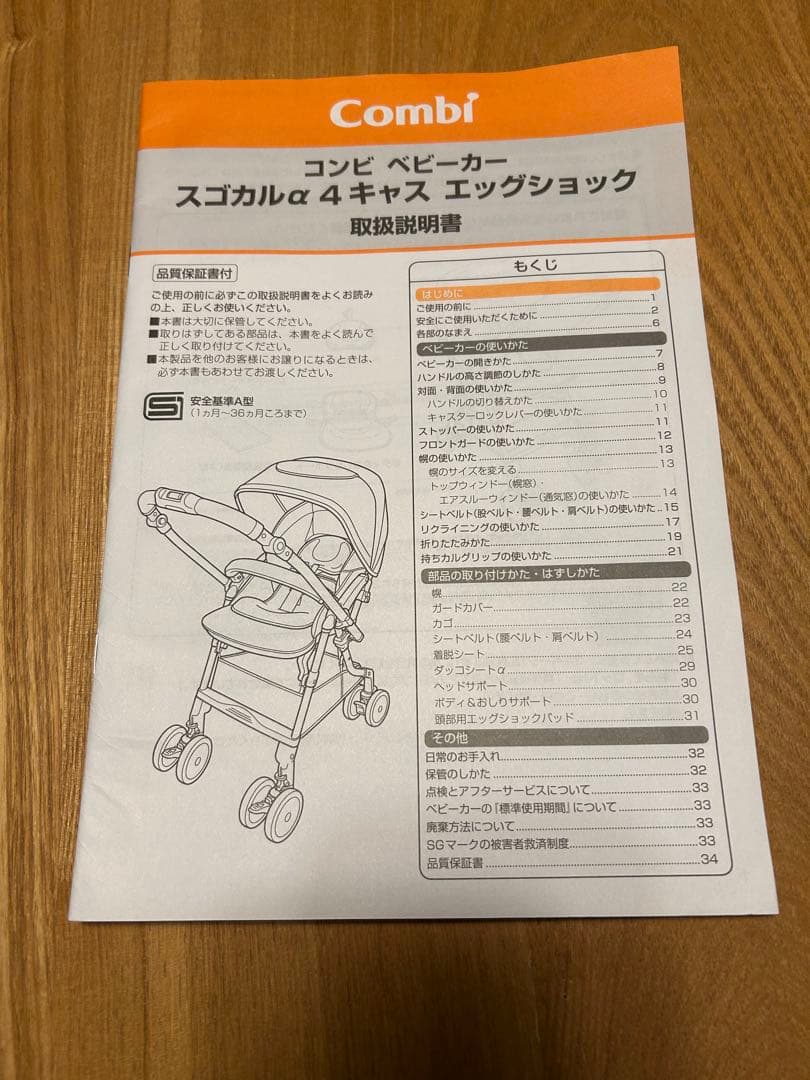 Combi
コンビ ベビーカー
スゴカルα 4キャス エッグショック
取扱説明書
品質保証書付
ご使用の前に必ずこの取扱説明書をよくお読み
の上、正しくお使いください。
■本書は大切に保管してください。
■取りはずしてある部品は、本書をよく読んで
正しく取り付けてください。
■本製品を他のお客様にお譲りになるときは、
必ず本書もあわせてお渡しください。
安全基準A型
(1ヵ月〜36ヵ月ころまで)
もくじ
はじめに
ご使用の前に 1
安全にご使用いただくために 2
各部のなまえ 6
ベビーカーの使いかた
ベビーカーの開きかた 7
ハンドルの高さ調節のしかた 8
対面・背面の使いかた 9
ハンドルの切り替えかた 10
キャスターロックレバーの使いかた 11
ストッパーの使いかた 11
フロントガードの使いかた 12
幌の使いかた 13
幌のサイズを変える 13
トップウィンドー(幌窓)・
エアスルーウィンドー(通気窓)の使いかた 14
シートベルト(股ベルト・腰ベルト・肩ベルト)の使いかた 15
リクライニングの使いかた 17
折りたたみかた 19
持ちカルグリップの使いかた 21
部品の取り付けかた・はずしかた
幌 22
ガードカバー 22
カゴ 23
シートベルト(腰ベルト・肩ベルト) 24
着脱シート 25
ダッコシートα 29
ヘッドサポート 30
ボディ&おしりサポート 30
頭部用エッグショックパッド 31
その他
日常のお手入れ 32
保管のしかた 32
点検とアフターサービスについて 33
ベビーカーの「標準使用期間」について 33
廃棄方法について 33
SGマークの被害者救済制度 33
品質保証書 34